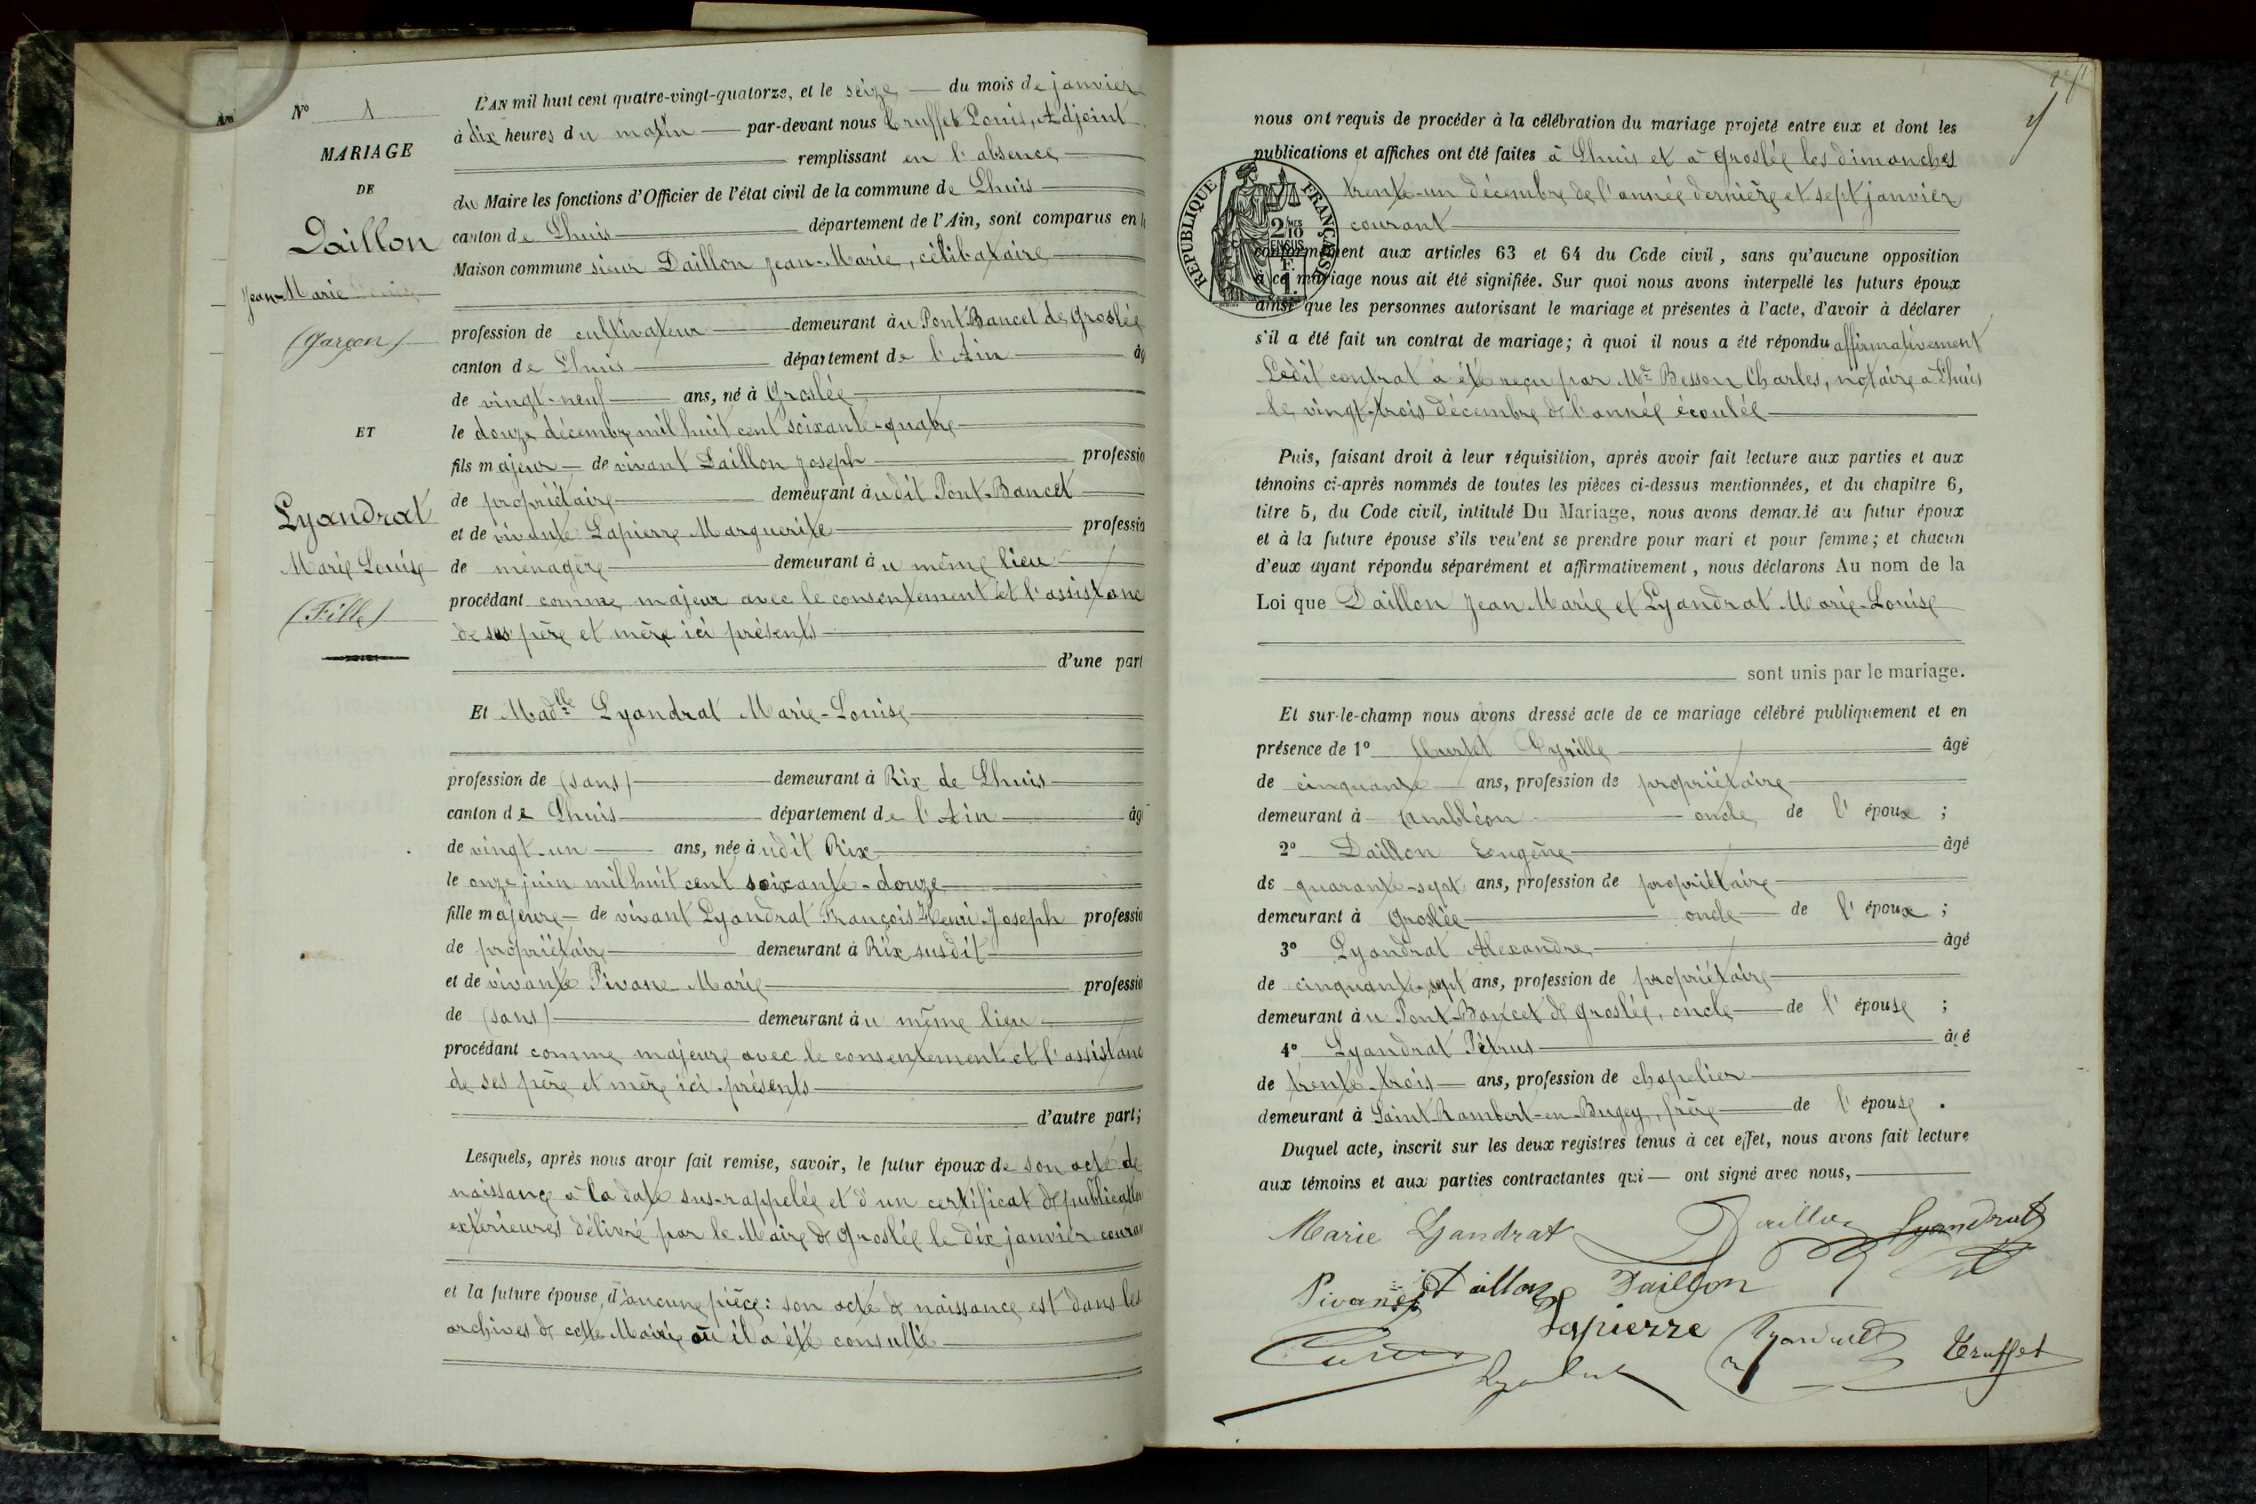 N° 1
MARIAGE
DE
Daillon
Jean-Marie
(garçon)
ET
Lyandrat
Marie Louise
(Fille)
L'AN mil huit cent quatre-vingt-quatorze, et le seize du mois de janvier
à dix heures du matin par-devant nous Truffet Louis, Adjoint
remplissant en l'absence
du Maire les fonctions d'Officier de l'état civil de la commune de Lhuis
canton de Lhuis département de l'Ain, sont comparus en la
Maison commune sieur Daillon Jean-Marie, célibataire
profession de cultivateur demeurant au Pont Bancet de Groslée
canton de Lhuis département de l'Ain âg
de vingt-neuf ans, né à Groslée
le douze décembre mil huit cent soixante-quatre
fils majeur de vivant Daillon Joseph professio
de propriétaire demeurant audit Pont-Bancet
et de vivante Lapierre Marguerite professio
de ménagère demeurant au même lieu
procédant comme majeur avec le consentement et l'assistanc
de ses père et mère ici présents
d'une part
Et Madlle Lyandrat Marie-Louise
profession de (sans) demeurant à Rix de Lhuis
canton de Lhuis département de l'Ain âg
de vingt-un ans, née audit Rix
le onze juin mil huit cent soixante-douze
fille majeure de vivant Lyandrat François Henri Joseph professio
de propriétaire demeurant à Rix susdit
et de vivante Pivane Marie professio
de (sans) demeurant au même lieu
procédant comme majeure avec le consentement et l'assistanc
de ses père et mère ici présents
d'autre part;
Lesquels, après nous avoir fait remise, savoir, le futur époux de son acte de
naissance à la date sus-rappelée et d'un certificat de publication
extérieures délivré par le Maire de Groslée le dix janvier couran
et la future épouse, d'aucune pièce: son acte de naissance est dans les
archives de cette Mairie où il a été consulté
nous ont requis de procéder à la célébration du mariage projeté entre eux et dont les
publications et affiches ont été faites à Lhuis et à Groslée les dimanches
trente-un décembre de l'année dernière et sept janvier
courant
RÉPUBLIQUE FRANÇAISE
conformément aux articles 63 et 64 du Code civil, sans qu'aucune opposition
à ce mariage nous ait été signifiée. Sur quoi nous avons interpellé les futurs époux
ainsi que les personnes autorisant le mariage et présentes à l'acte, d'avoir à déclarer
s'il a été fait un contrat de mariage; à quoi il nous a été répondu affirmativement
Ledit contrat a été reçu par Me Besson Charles, notaire à Lhuis
le vingt-trois décembre de l'année écoulée
Puis, faisant droit à leur réquisition, après avoir fait lecture aux parties et aux
témoins ci-après nommés de toutes les pièces ci-dessus mentionnées, et du chapitre 6,
titre 5, du Code civil, intitulé Du Mariage, nous avons demandé au futur époux
et à la future épouse s'ils veulent se prendre pour mari et pour femme; et chacun
d'eux ayant répondu séparément et affirmativement, nous déclarons Au nom de la
Loi que Daillon Jean Marie et Lyandrat Marie-Louise
sont unis par le mariage.
Et sur-le-champ nous avons dressé acte de ce mariage célébré publiquement et en
présence de 1° Cyrille âgé
de cinquante ans, profession de propriétaire
demeurant à Ambléon oncle de l'époux ;
2° Daillon Eugène âgé
de quarante-sept ans, profession de propriétaire
demeurant à Groslée oncle de l'époux ;
3° Lyandrat Alexandre âgé
de cinquante-sept ans, profession de propriétaire
demeurant au Pont-Bancet de Groslée, oncle de l'épouse ;
4° Lyandrat Pétrus âgé
de trente-trois ans, profession de chapelier
demeurant à Saint Rambert-en-Bugey, frère de l'épouse .
Duquel acte, inscrit sur les deux registres tenus à cet effet, nous avons fait lecture
aux témoins et aux parties contractantes qui ont signé avec nous,
Marie Lyandrat Daillon Lyandrat
Pivane Daillon Daillon
Lapierre Lyandrat Truffet